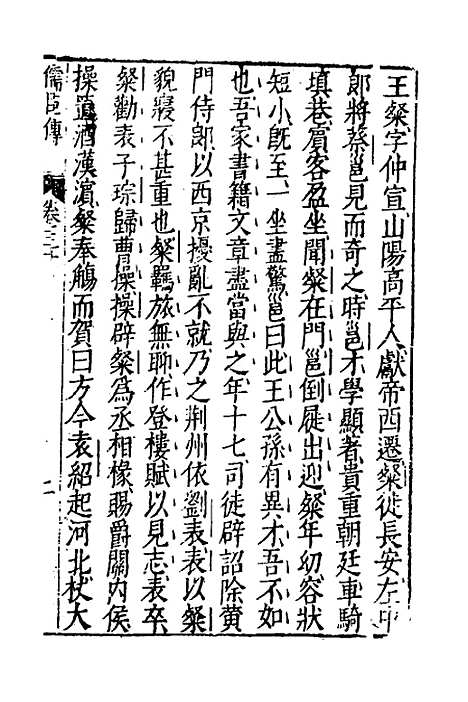 王粲字仲宣山陽高平人獻帝西遷粲徙長安左中
郎將蔡邕見而奇之時邕才學顯著貴重朝廷車騎
填巷賓客盈坐聞粲在門邕倒屣出迎粲年幼容狀
短小既至一坐盡驚邕曰此王公孫有異才吾不如
也吾家書籍文章盡當與之年十七司徒辟詔除黄
門侍郎以西京擾亂不就乃之荆州依劉表表以粲
貌寢不甚重也粲羈旅無聊作登樓賦以見志表卒
粲勸表子琮歸曹操操辟粲爲丞相椽賜爵關内侯
操置酒漢濵粲奉觴而賀曰方今袁紹起河北杖大
儒臣傳 卷三十 二